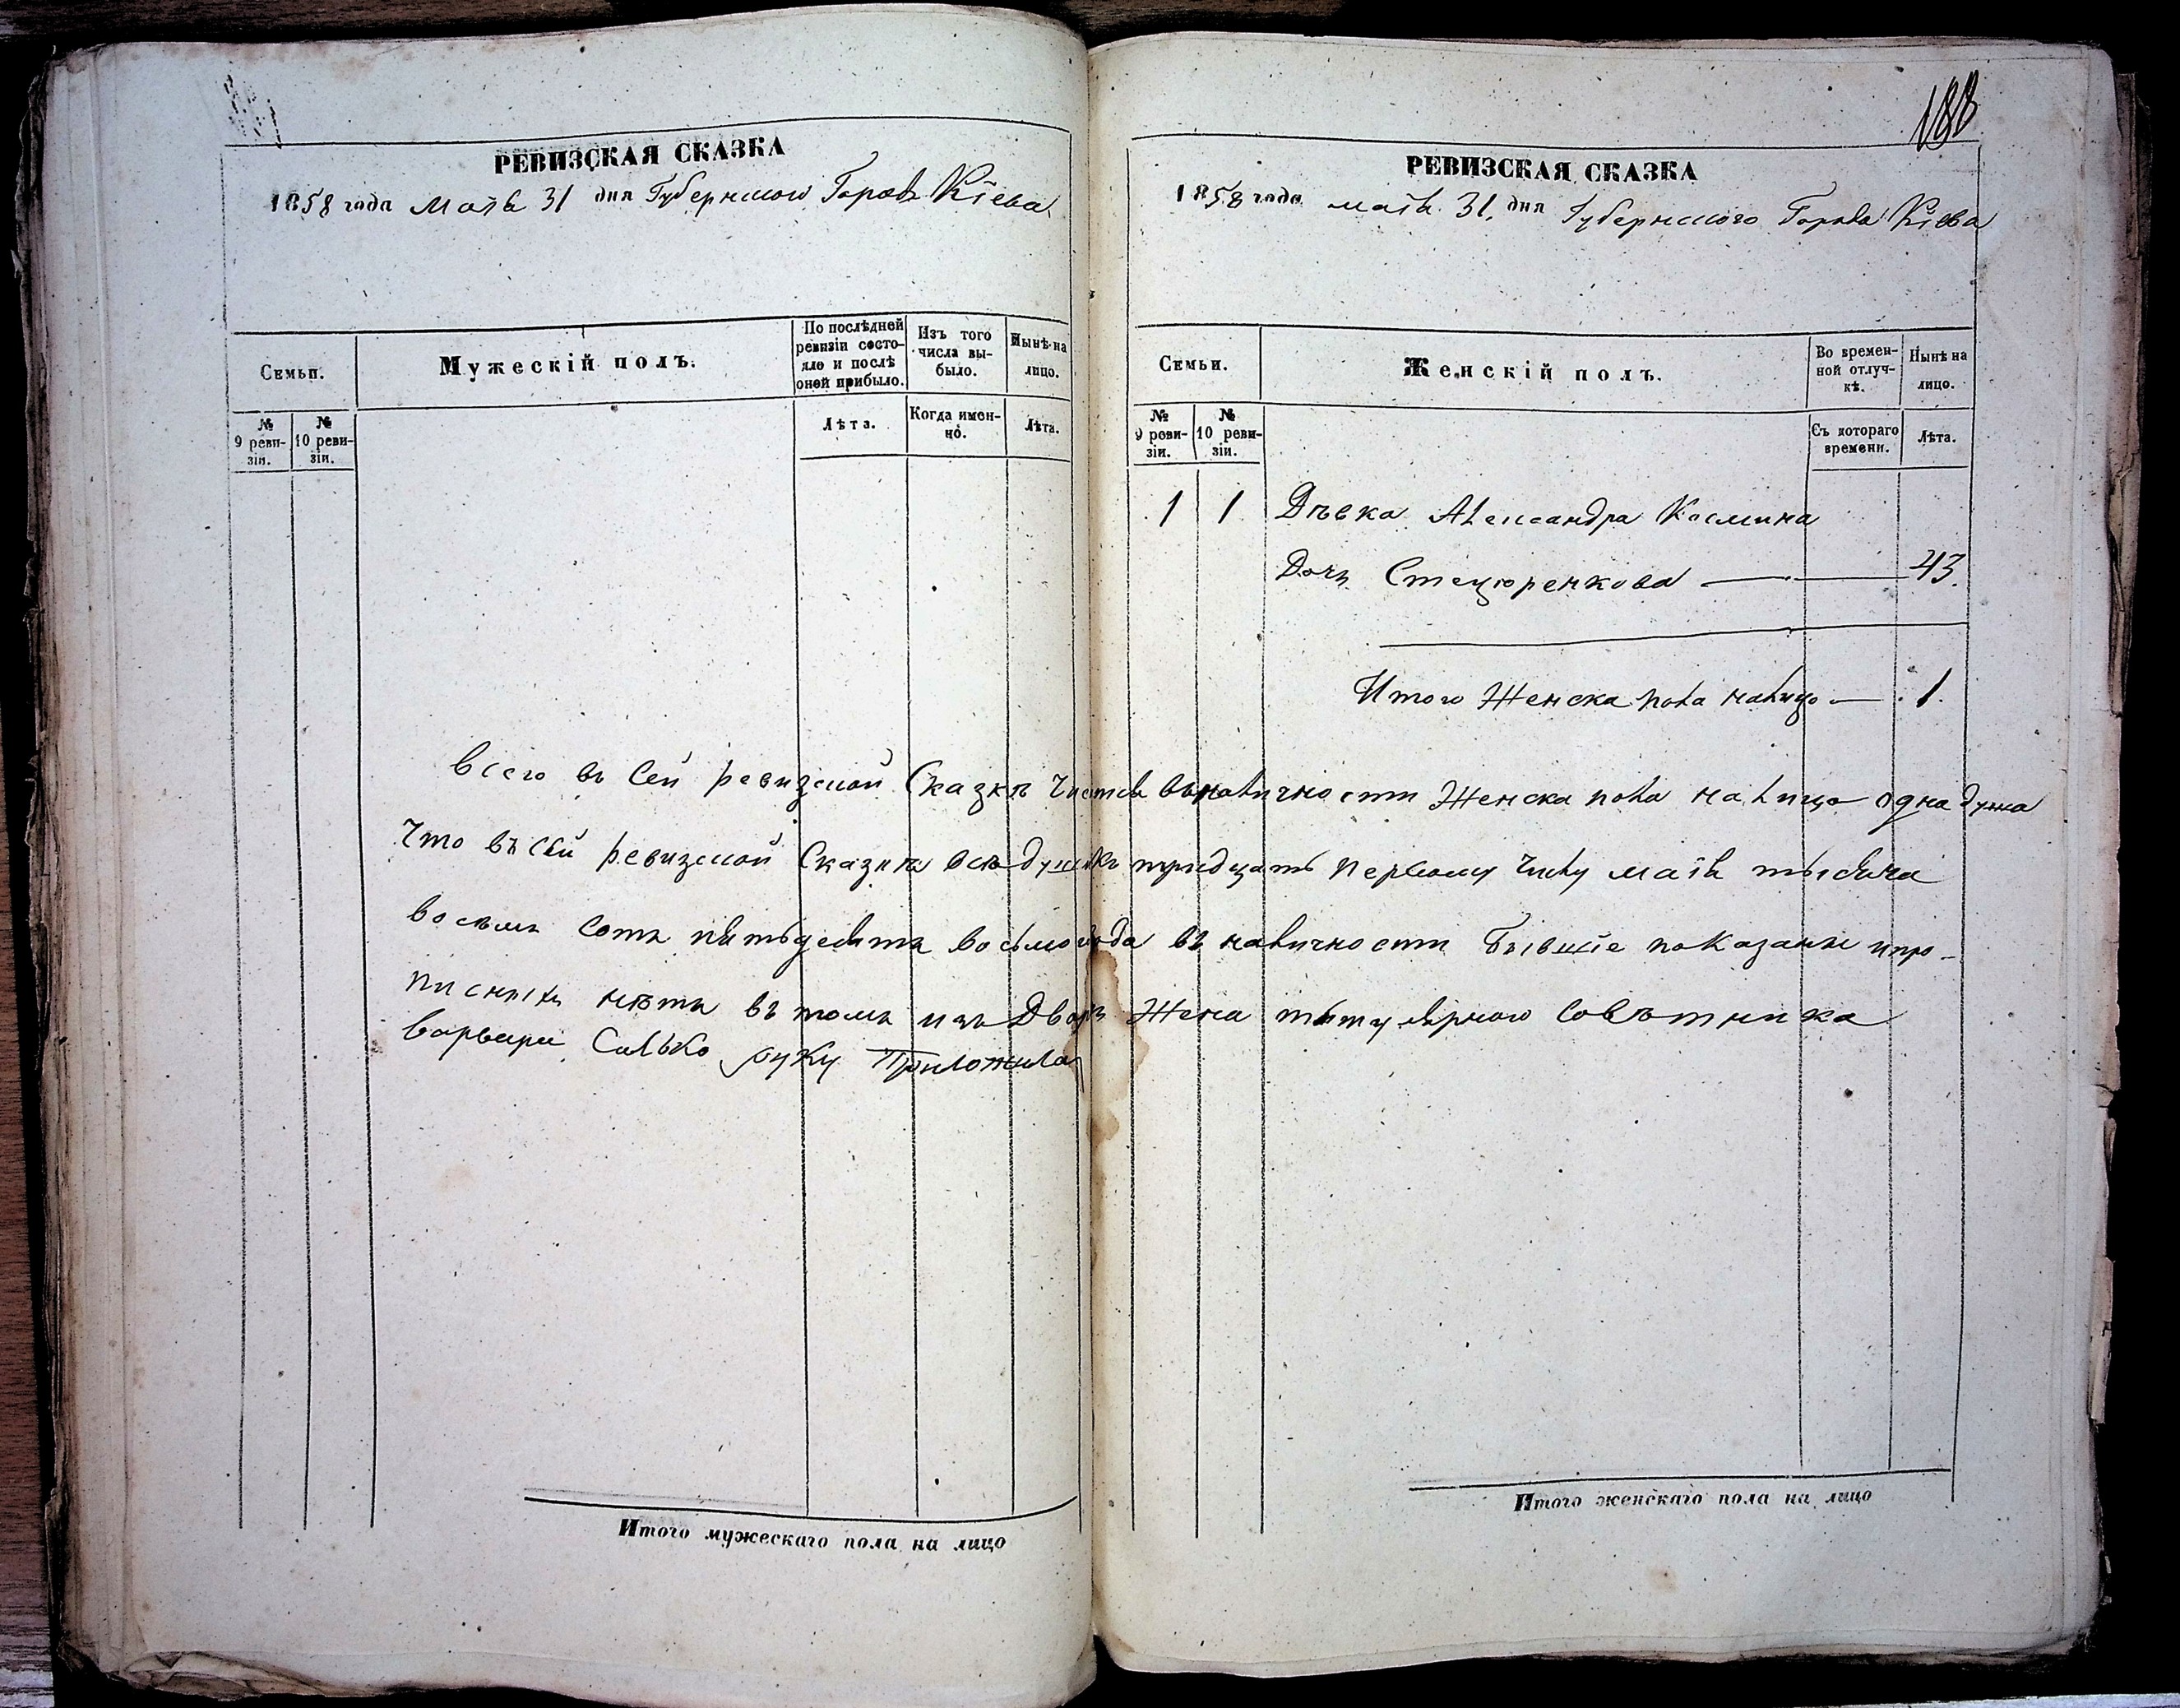 РЕВИЗСКАЯ СКАЗКА
1858 года маія 31 дня Губернского Города Кіева
Семьи.
Мужескій полъ.
По послѣдней ревизіи состояло и послѣ оной прибыло.
Изъ того числа выбыло.
Нынѣ на лицо.
№ 9 ревизіи.
№ 10 ревизіи.
Лѣта.
Когда именно.
Лѣта.
188
РЕВИЗСКАЯ СКАЗКА
1858 года маія 31. дня Губернского Города Кіева
Семьи.
Женскій полъ.
Во временной отлучкѣ.
Нынѣ на лицо.
№ 9 ревизіи.
№ 10 ревизіи.
Съ котораго времени.
Лѣта.
1 1 Дѣвка Александра Космина
Дочь Стецюренкова — 43.
Итого Женска пола налицо — 1.
Всего въ Сей ревизской Сказкѣ числится въ наличности Женска пола налицо одна душа
Что въ сей ревизской Сказкѣ всѣ души къ тридцать первому числу маія тысяча
восемъ сотъ пятьдесятъ восьмого года въ наличности бывшіе показаны и про-
писныхъ нѣтъ въ томъ изъ Дворъ Жена титулярного Совѣтника
Варвара Силько руку Приложила
Итого мужескаго пола на лицо
Итого женскаго пола на лицо